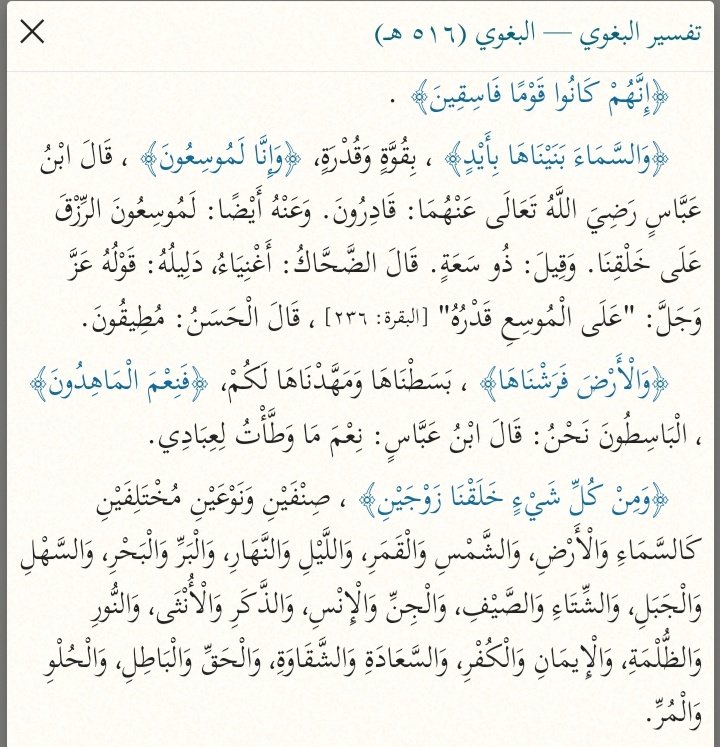 تفسير البغوي — البغوي (٥١٦ هـ)
﴿إِنَّهُمْ كَانُوا قَوْمًا فَاسِقِينَ﴾ .
﴿وَالسَّمَاءَ بَنَيْنَاهَا بِأَيْدٍ﴾ ، بِقُوَّةٍ وَقُدْرَةٍ، ﴿وَإِنَّا لَمُوسِعُونَ﴾ ، قَالَ ابْنُ
عَبَّاسٍ رَضِيَ اللَّهُ تَعَالَى عَنْهُمَا: قَادِرُونَ. وَعَنْهُ أَيْضًا: لَمُوسِعُونَ الرِّزْقَ
عَلَى خَلْقِنَا. وَقِيلَ: ذُو سَعَةٍ. قَالَ الضَّحَّاكُ: أَغْنِيَاءُ، دَلِيلُهُ: قَوْلُهُ عَزَّ
وَجَلَّ: "عَلَى الْمُوسِعِ قَدْرُهُ" [البقرة: ٢٣٦] ، قَالَ الْحَسَنُ: مُطِيقُونَ.
﴿وَالْأَرْضَ فَرَشْنَاهَا﴾ ، بَسَطْنَاهَا وَمَهَّدْنَاهَا لَكُمْ، ﴿فَنِعْمَ الْمَاهِدُونَ﴾
، الْبَاسِطُونَ نَحْنُ: قَالَ ابْنُ عَبَّاسٍ: نِعْمَ مَا وَطَّأْتُ لِعِبَادِي.
﴿وَمِنْ كُلِّ شَيْءٍ خَلَقْنَا زَوْجَيْنِ﴾ ، صِنْفَيْنِ وَنَوْعَيْنِ مُخْتَلِفَيْنِ
كَالسَّمَاءِ وَالْأَرْضِ، وَالشَّمْسِ وَالْقَمَرِ، وَاللَّيْلِ وَالنَّهَارِ، وَالْبَرِّ وَالْبَحْرِ، وَالسَّهْلِ
وَالْجَبَلِ، وَالشِّتَاءِ وَالصَّيْفِ، وَالْجِنِّ وَالْإِنْسِ، وَالذَّكَرِ وَالْأُنْثَى، وَالنُّورِ
وَالظُّلْمَةِ، وَالْإِيمَانِ وَالْكُفْرِ، وَالسَّعَادَةِ وَالشَّقَاوَةِ، وَالْحَقِّ وَالْبَاطِلِ، وَالْحُلْوِ
وَالْمُرِّ.